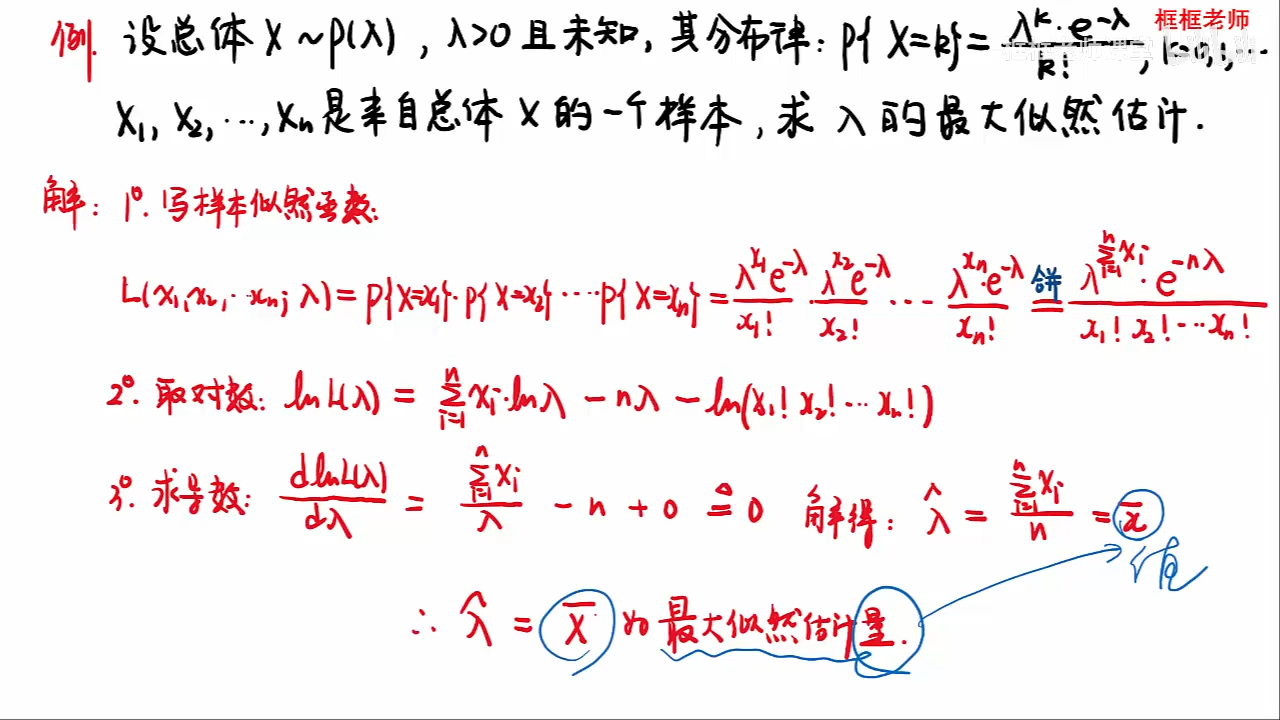 框框老师
例. 设总体 X ~ P(λ), λ>0 且未知, 其分布律: P{X=k} = λ^k·e^{-λ} / k!, k=0,1,…
X₁, X₂, …, Xₙ 是来自总体 X 的一个样本, 求 λ 的最大似然估计.
解: 1°. 写样本似然函数:
L(x₁,x₂,…xₙ; λ) = P{X=x₁}·P{X=x₂}····P{X=xₙ} = λ^{x₁}e^{-λ}/x₁! · λ^{x₂}e^{-λ}/x₂! ··· λ^{xₙ}·e^{-λ}/xₙ! 合并 = λ^{∑_{i=1}^n x_i}·e^{-nλ} / x₁! x₂!···xₙ!
2°. 取对数: lnL(λ) = ∑_{i=1}^n x_i·lnλ - nλ - ln(x₁! x₂!···xₙ!)
3°. 求导数: dlnL(λ)/dλ = ∑_{i=1}^n x_i/λ - n + 0 ≙ 0 解得: λ̂ = ∑_{i=1}^n x_i/n = x̄
值
∴ λ̂ = X̄ 为最大似然估计量.